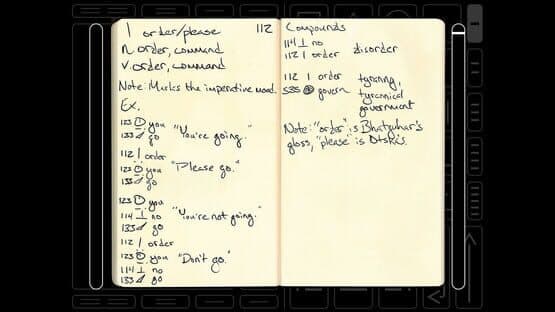 | order/please 112
n. order, command
v. order, command
Note: Marks the imperative mood.
Ex.
123 you
133 go
"You're going."
112 | order
123 you
133 go
"Please go."
123 you
114 ⊥ no
133 go
"You're not going."
112 | order
123 you
114 ⊥ no
133 go
"Don't go."
Compounds
114 ⊥ no
112 | order
disorder
112 | order
535 govern
tyranny,
tyrannical
government
Note: "order" is Bhatguhar's
gloss, "please" is Dtska's.